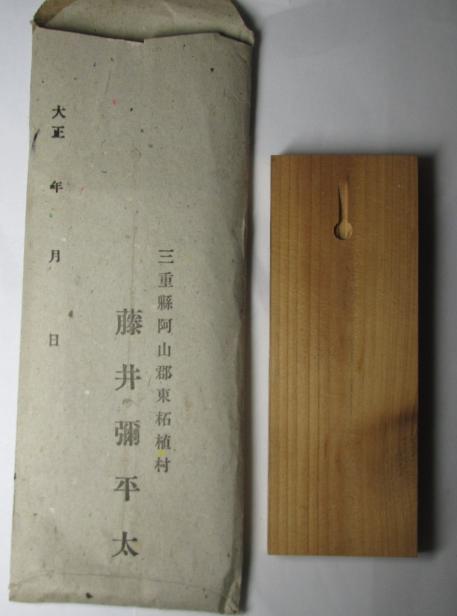 三重縣阿山郡東柘植村
藤井彌平太
大正 年 月 日